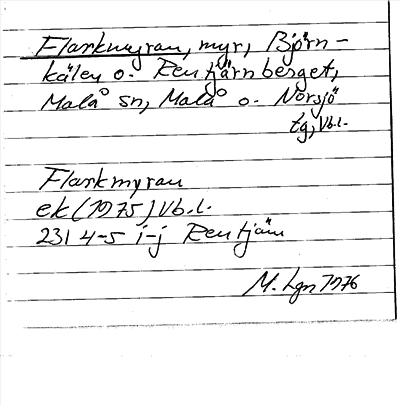 Flarkmyran, myr, Björn-
kälen o. Rentjärnberget,
Malå sn, Malå o. Norsjö
tg, Vb.l.
Flarkmyran
ek (1975) Vb.l.
231 4-5 i-j Rentjärn
M. Lgn 1976